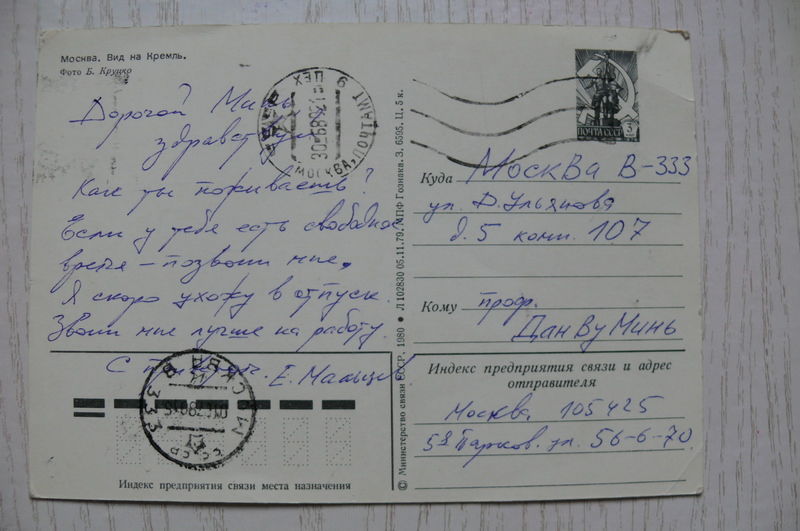 Москва. Вид на Кремль.
Фото Б. Круцко
Дорогой Минь
здравствуй
Как ты поживаешь?
Если у тебя есть свободное
время – позвони мне,
Я скоро ухожу в отпуск.
Звони мне лучше на работу.
С
Е.
ПОЧТАМТ 9 ЦЕХ
МОСКВА,
ПОЧТА СССР
Куда Москва В-333
ул. Д. Ульянова
д. 5 комн. 107
Кому проф.
Дан Ву Минь
Индекс предприятия связи и адрес
отправителя
Москва, 105425
5я Парков. ул. 56-6-70
МОСКВА В
333
СССР
Индекс предприятия связи места назначения
© Министерство связи СССР. 1980 ● Л 102830 05.11.79. МПФ Гознака. З. 6595. Ц. 5 к.